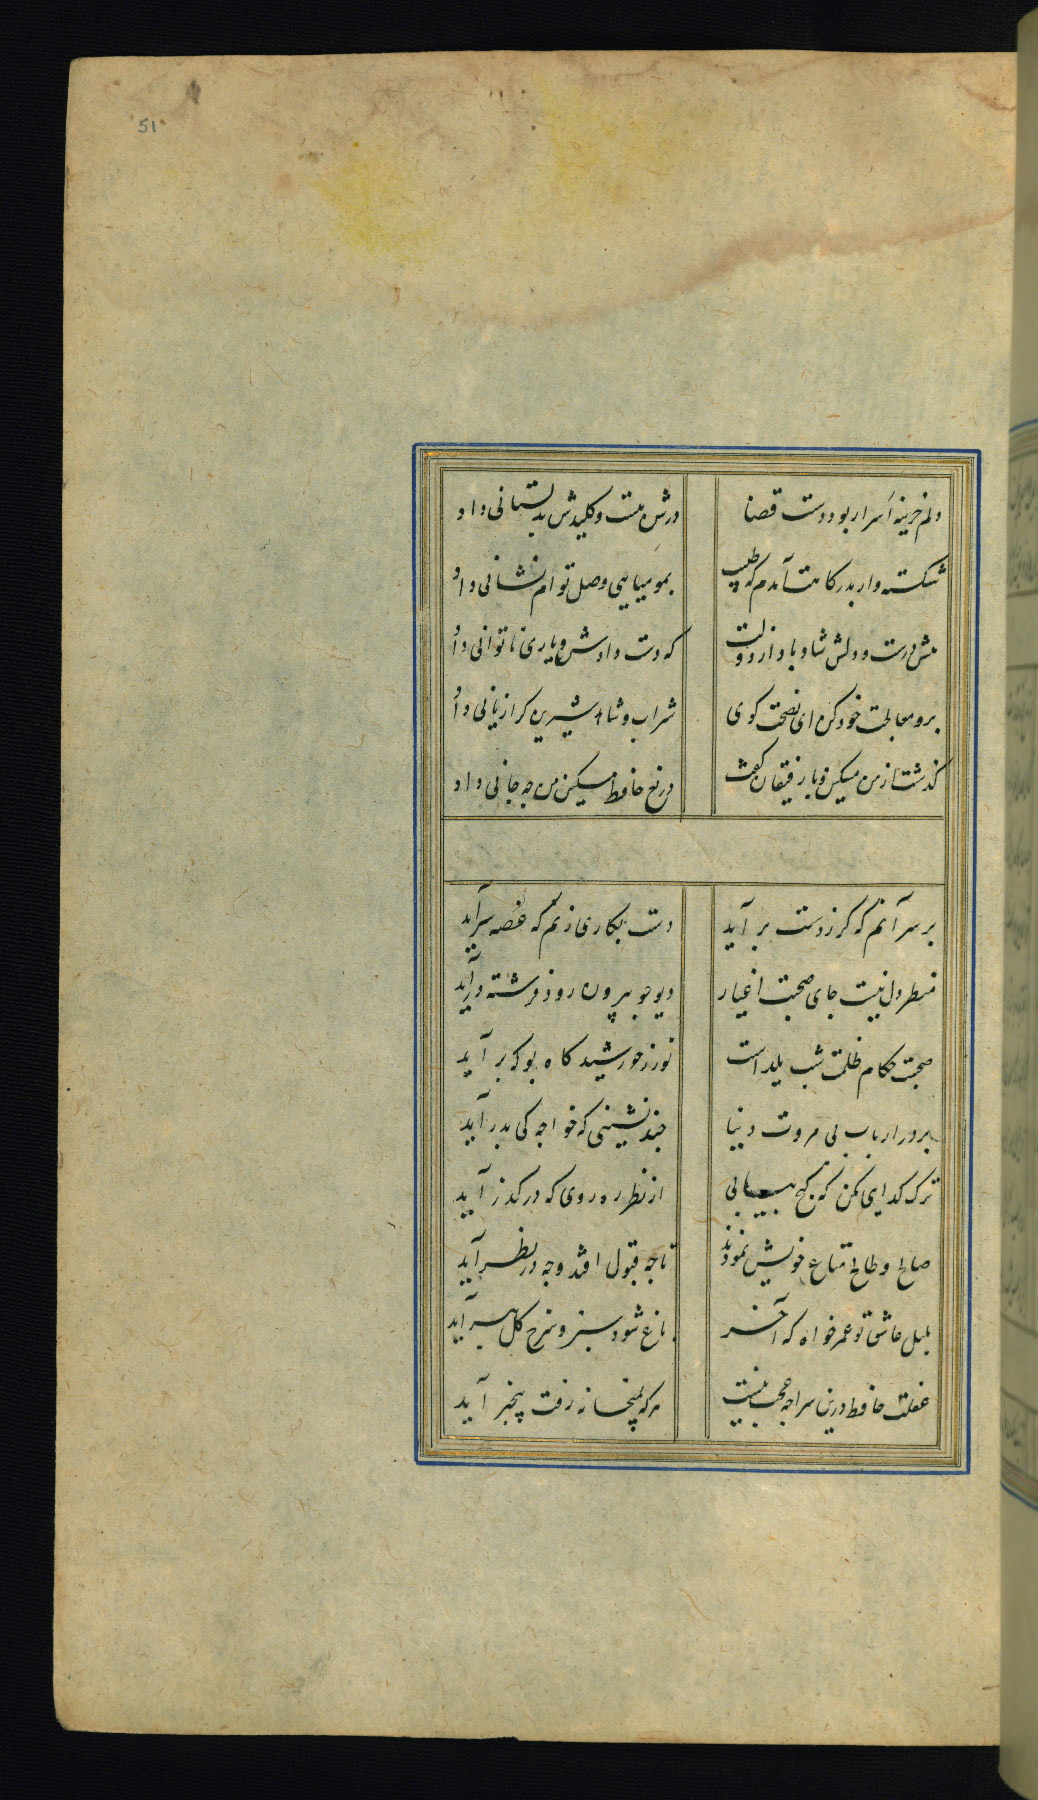 51
دلم خزینه اسرار بود و دست قضا درش ببست و کلیدش بدلستانی داد
شکسته وار بدرکاهت آمدم که طبیب بمومیایی وصل توام نشانی داد
تنش درست و دلش شاد باد از دولت که دست دادش و یاری ناتوانی داد
برو معالجت خود کن ای نصحت کوی شراب و شاهد شیرین کرا زیانی داد
کذشت از من مسکین و با رفیقان کفت دریغ حافظ مسکین من چه جانی داد
بر سر آنم که کر ز دست بر آید دست بکاری زنم که غصه سر آید
منظر دل نیست جای صحبت اغیار دیو چو بیرون رود فرشته در آید
صحبت حکام ظلمت شب یلداست نور ز خورشید خواه بو که بر آید
بر در ارباب بی مروت دنیا چند نشینی که خواجه کی بدر آید
ترک کدایی مکن که کنج بیابی از نظر ره روی که در کذر آید
صالح و طالح متاع خویش نمودند تا چه قبول افتد و چه در نظر آید
بلبل عاشق تو عمر خواه که آخر باغ شود سبز و سرخ کل ببر آید
غفلت حافظ درین سراچه عجب نیست هر که بمیخانه رفت بیخبر آید